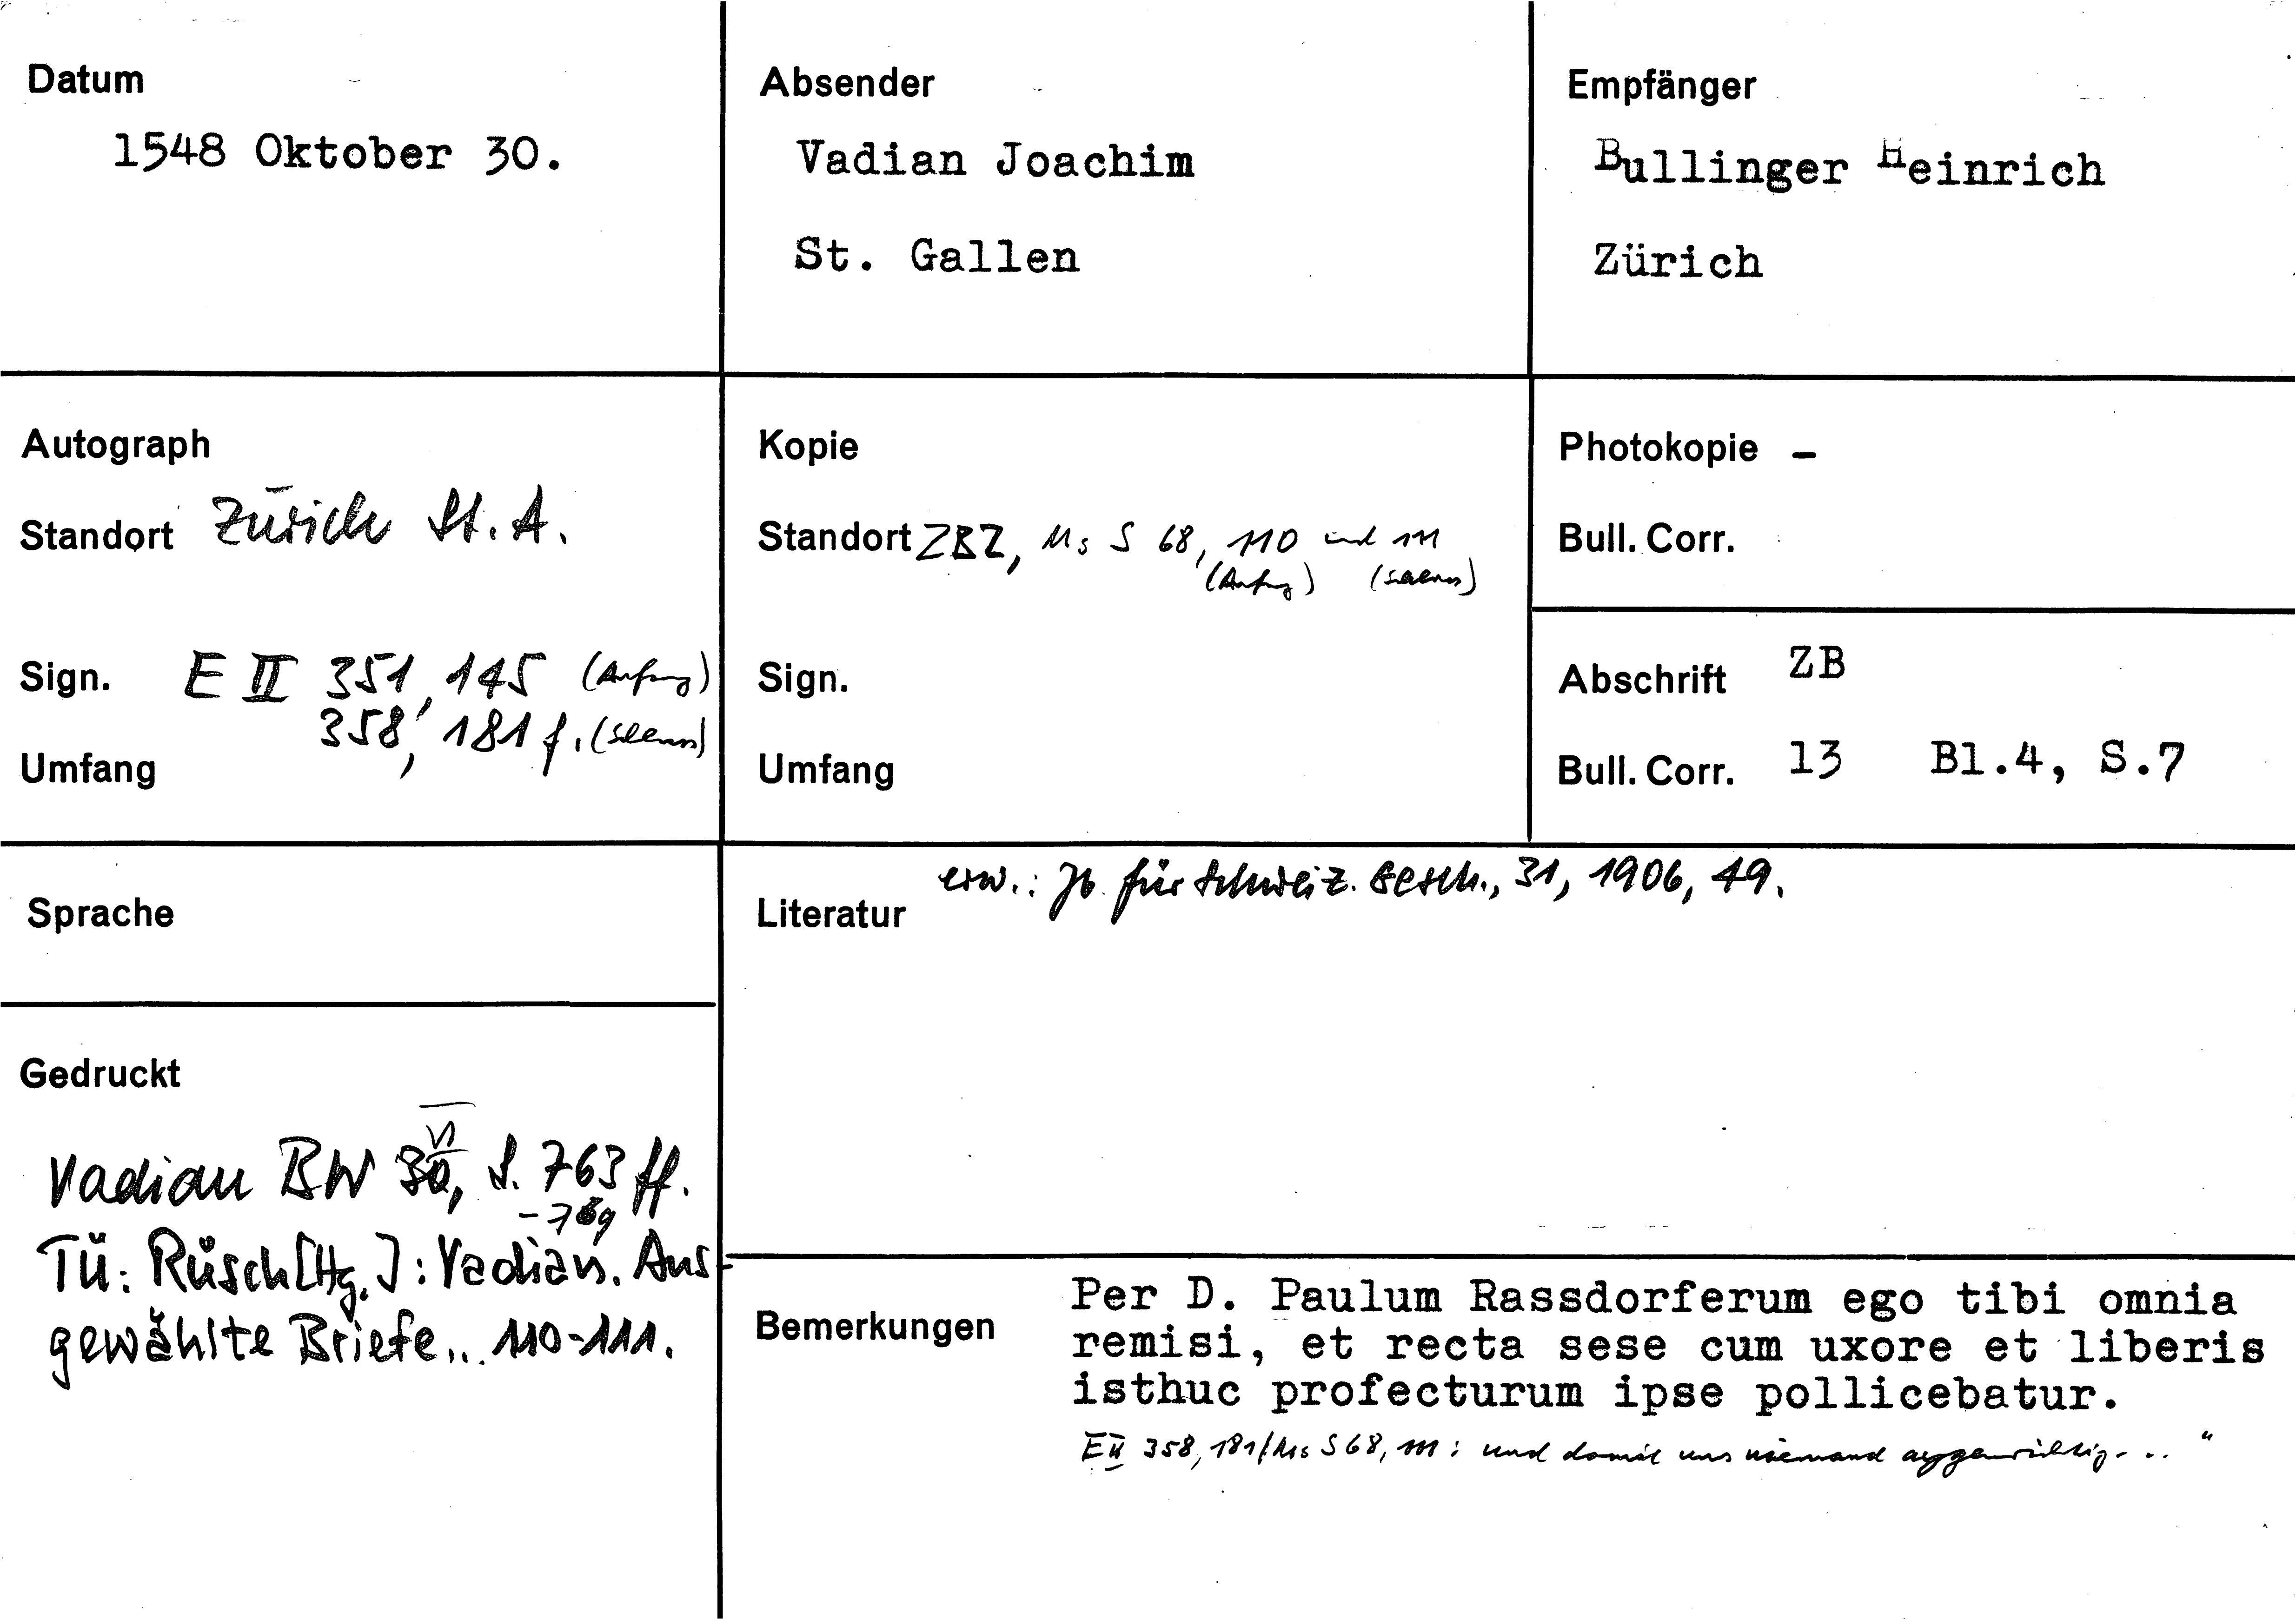 Datum
1548 Oktober 30.
Absender
Vadian Joachim
St. Gallen
Empfänger
Bullinger Heinrich
Zürich
Autograph
Standort Zürich St. A.
Sign. E II 351, 145 (Anfang)
358, 181 f. (Schluss)
Umfang
Kopie
Standort ZBZ, Ms S 68, 110 und 111
(Anfang) (Schluss)
Sign.
Umfang
Photokopie -
Bull. Corr.
Abschrift ZB
Bull. Corr. 13 Bl.4, S.7
Sprache
Literatur erw.: Jb. für Schweiz. Gesch., 31, 1906, 49.
Gedruckt
VI
Vadian BW 30, S. 763 ff.
-769
TÜ: Rüsch [Hg.]: Vadian. Aus-
gewählte Briefe... 110-111.
Bemerkungen
Per D. Paulum Rassdorferum ego tibi omnia
remisi, et recta sese cum uxore et liberis
isthuc profecturum ipse pollicebatur.
E II 358, 181/Ms S 68, 111: und damit uns niemand ..."